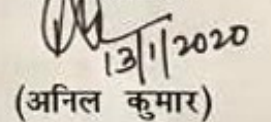 13/1/2020
(अनिल कुमार)